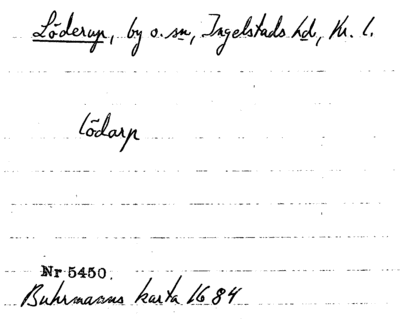 Löderup, by o. sn, Ingelstads hd, Kr. l.
Lödarp
Nr 5450.
Buhrmanns karta 1684